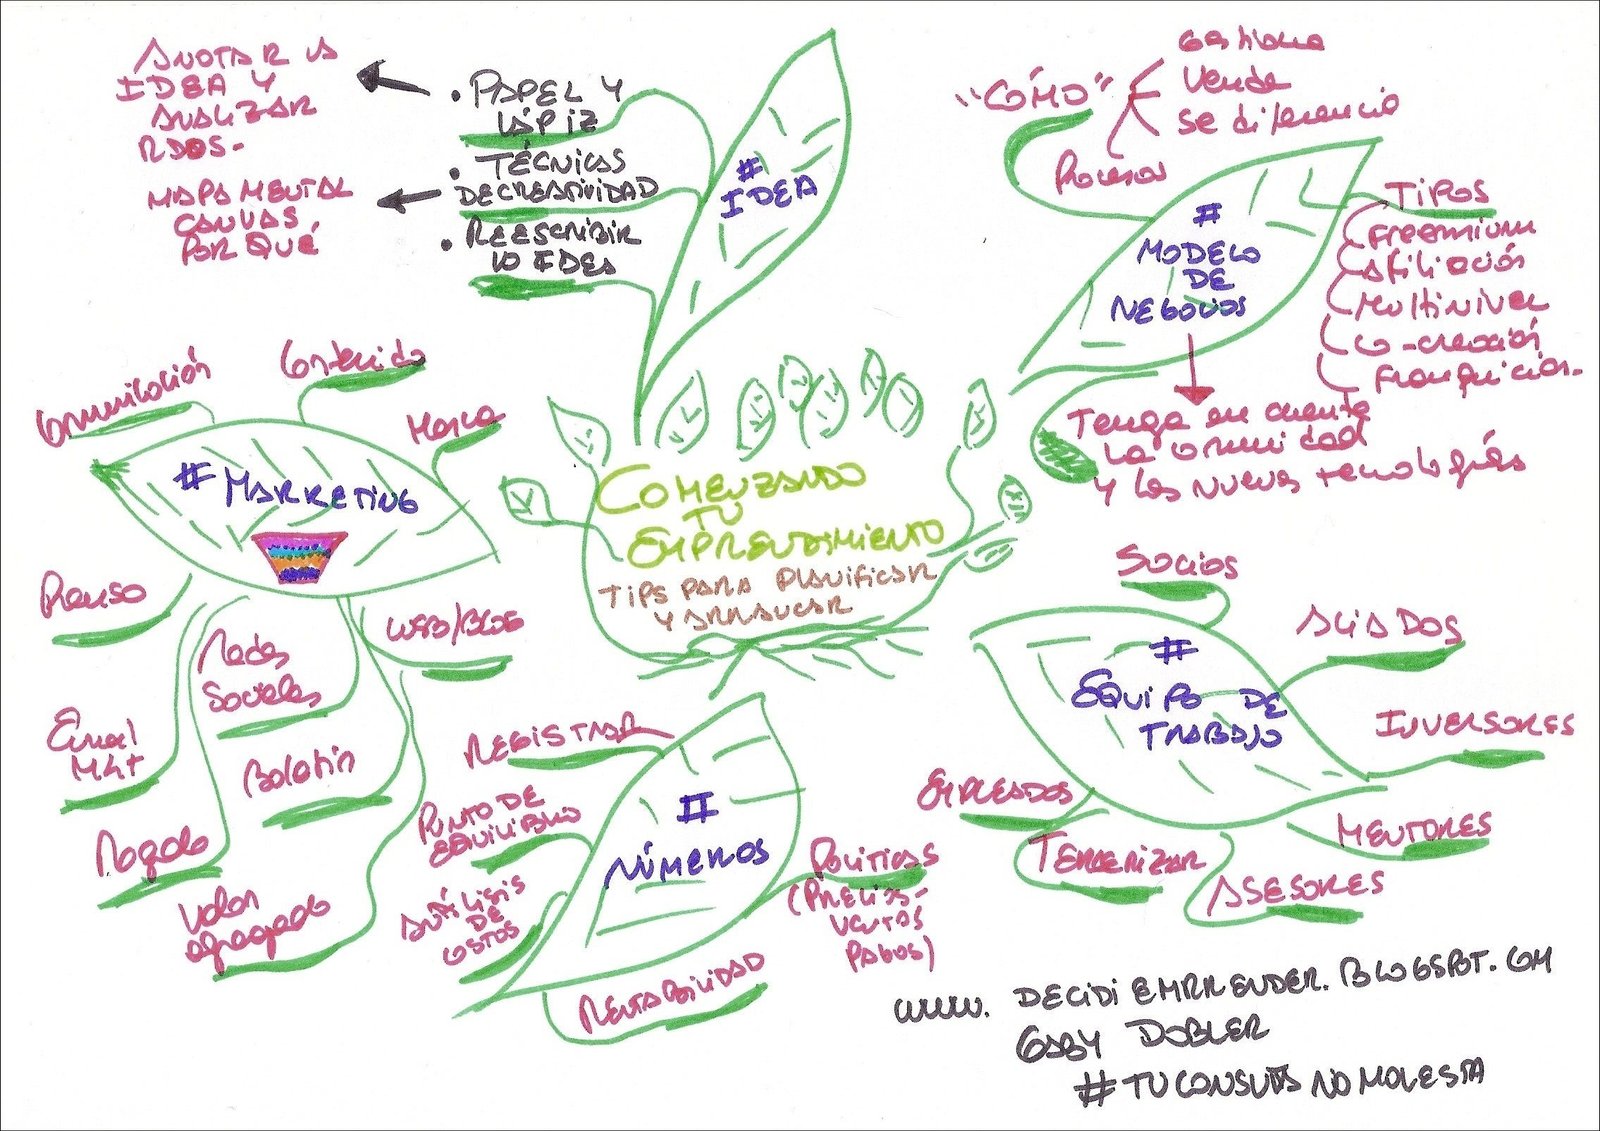 ANOTAR LA
IDEA Y
ANALIZAR
RDOS.
MAPA MENTAL
CANVAS
POR QUÉ
• PAPEL Y
LÁPIZ
• TÉCNICAS
DE CREATIVIDAD
• REESCRIBIR
LO IDEA
# IDEA
"CÓMO"
Gestiona
Vende
se diferencia
Procesos
# MODELO
DE
NEGOCIOS
TIPOS
Freemium
Afiliación
Multinivel
Co-creación
Franquicias.
Tenga en cuenta
la comunidad
y las nuevas tecnologías
Comunicación
Contenido
Marca
# MARKETING
Prensa
Redes
Sociales
WEB/BLOG
Email
MKT
Boletín
Regalo
Valor
agregado
COMENZANDO
TU
EMPRENDIMIENTO
TIPS PARA PLANIFICAR
Y ARRANCAR
# EQUIPO DE
TRABAJO
SOCIOS
ALIADOS
INVERSORES
MENTORES
ASESORES
TERCERIZAR
EMPLEADOS
# NÚMEROS
REGISTRAR
PUNTO DE
EQUILIBRIO
ANÁLISIS
DE
COSTOS
RENTABILIDAD
POLÍTICAS
(PRECIOS-
VENTAS
PAGOS)
WWW. DECIDIEMPRENDER.BLOGSPOT.COM
GABY DOBLER
#TUCONSULTANOMOLESTA